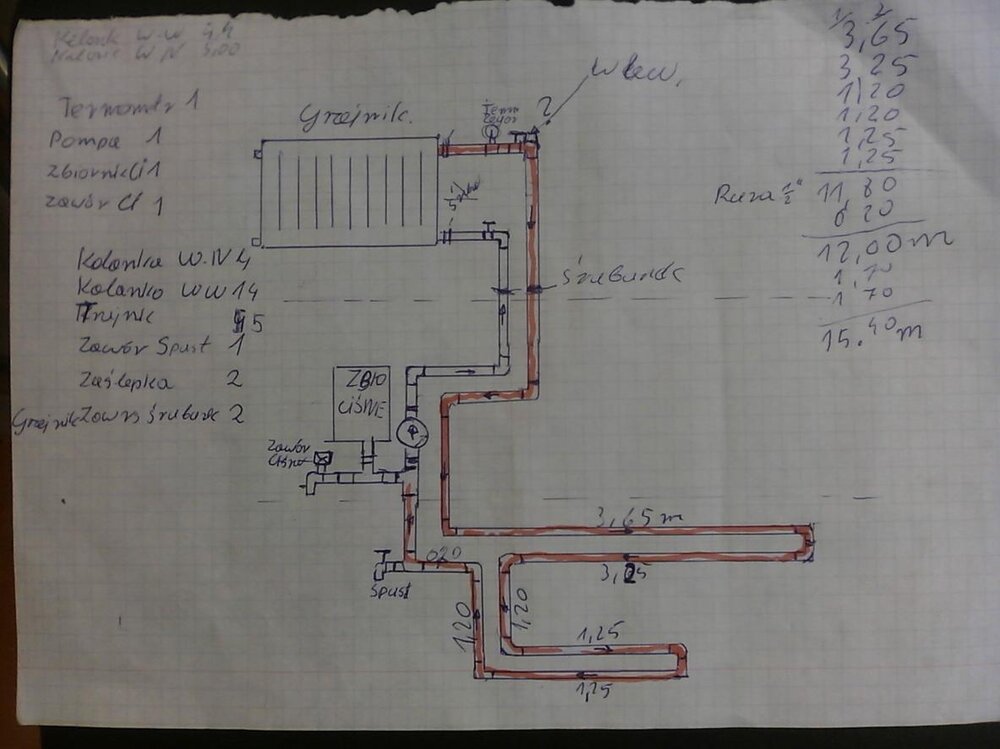 W.W 4,4
W N 5,00
Termometr 1
Pompa 1
Zbiornik Ci 1
Zawór Ci 1
Kolanka W.N 4
Kolanko WW 14
Trujnik 5
Zawór Spust 1
Zaślepka 2
Grzejnik Zawrs śrubunk 2
Grzejnik.
Wlew,
?
śrubunk
ZBIO
CIŚNIE
Zawór
P
3,65 m
3,25
020
Spust
1,20
1,20
1,25
1,25
3,65
3,25
1,20
1,20
1,25
1,25
Rura ½" 11,80
0 20
12,00 m
1,70
1,70
15.40 m